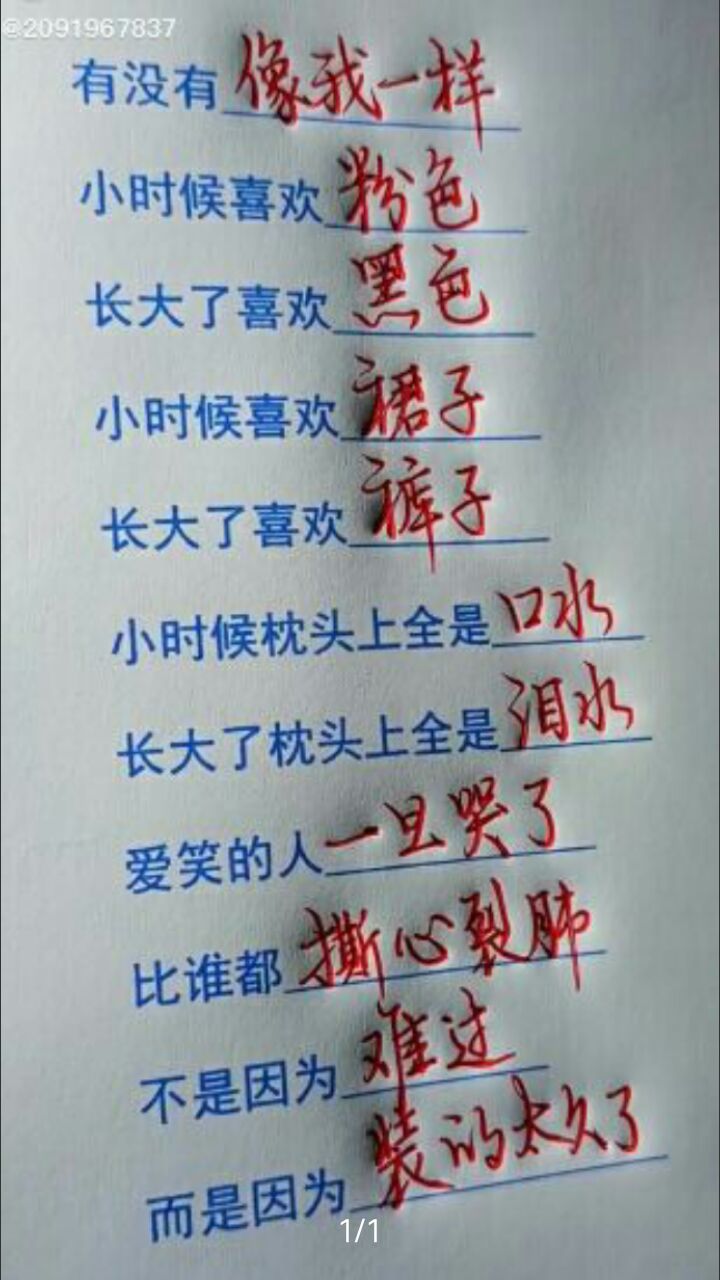 @2091967837
有没有像我一样
小时候喜欢粉色
长大了喜欢黑色
小时候喜欢裙子
长大了喜欢裤子
小时候枕头上全是口水
长大了枕头上全是泪水
爱笑的人一旦哭了
比谁都撕心裂肺
不是因为难过
而是因为装的太久了
1/1